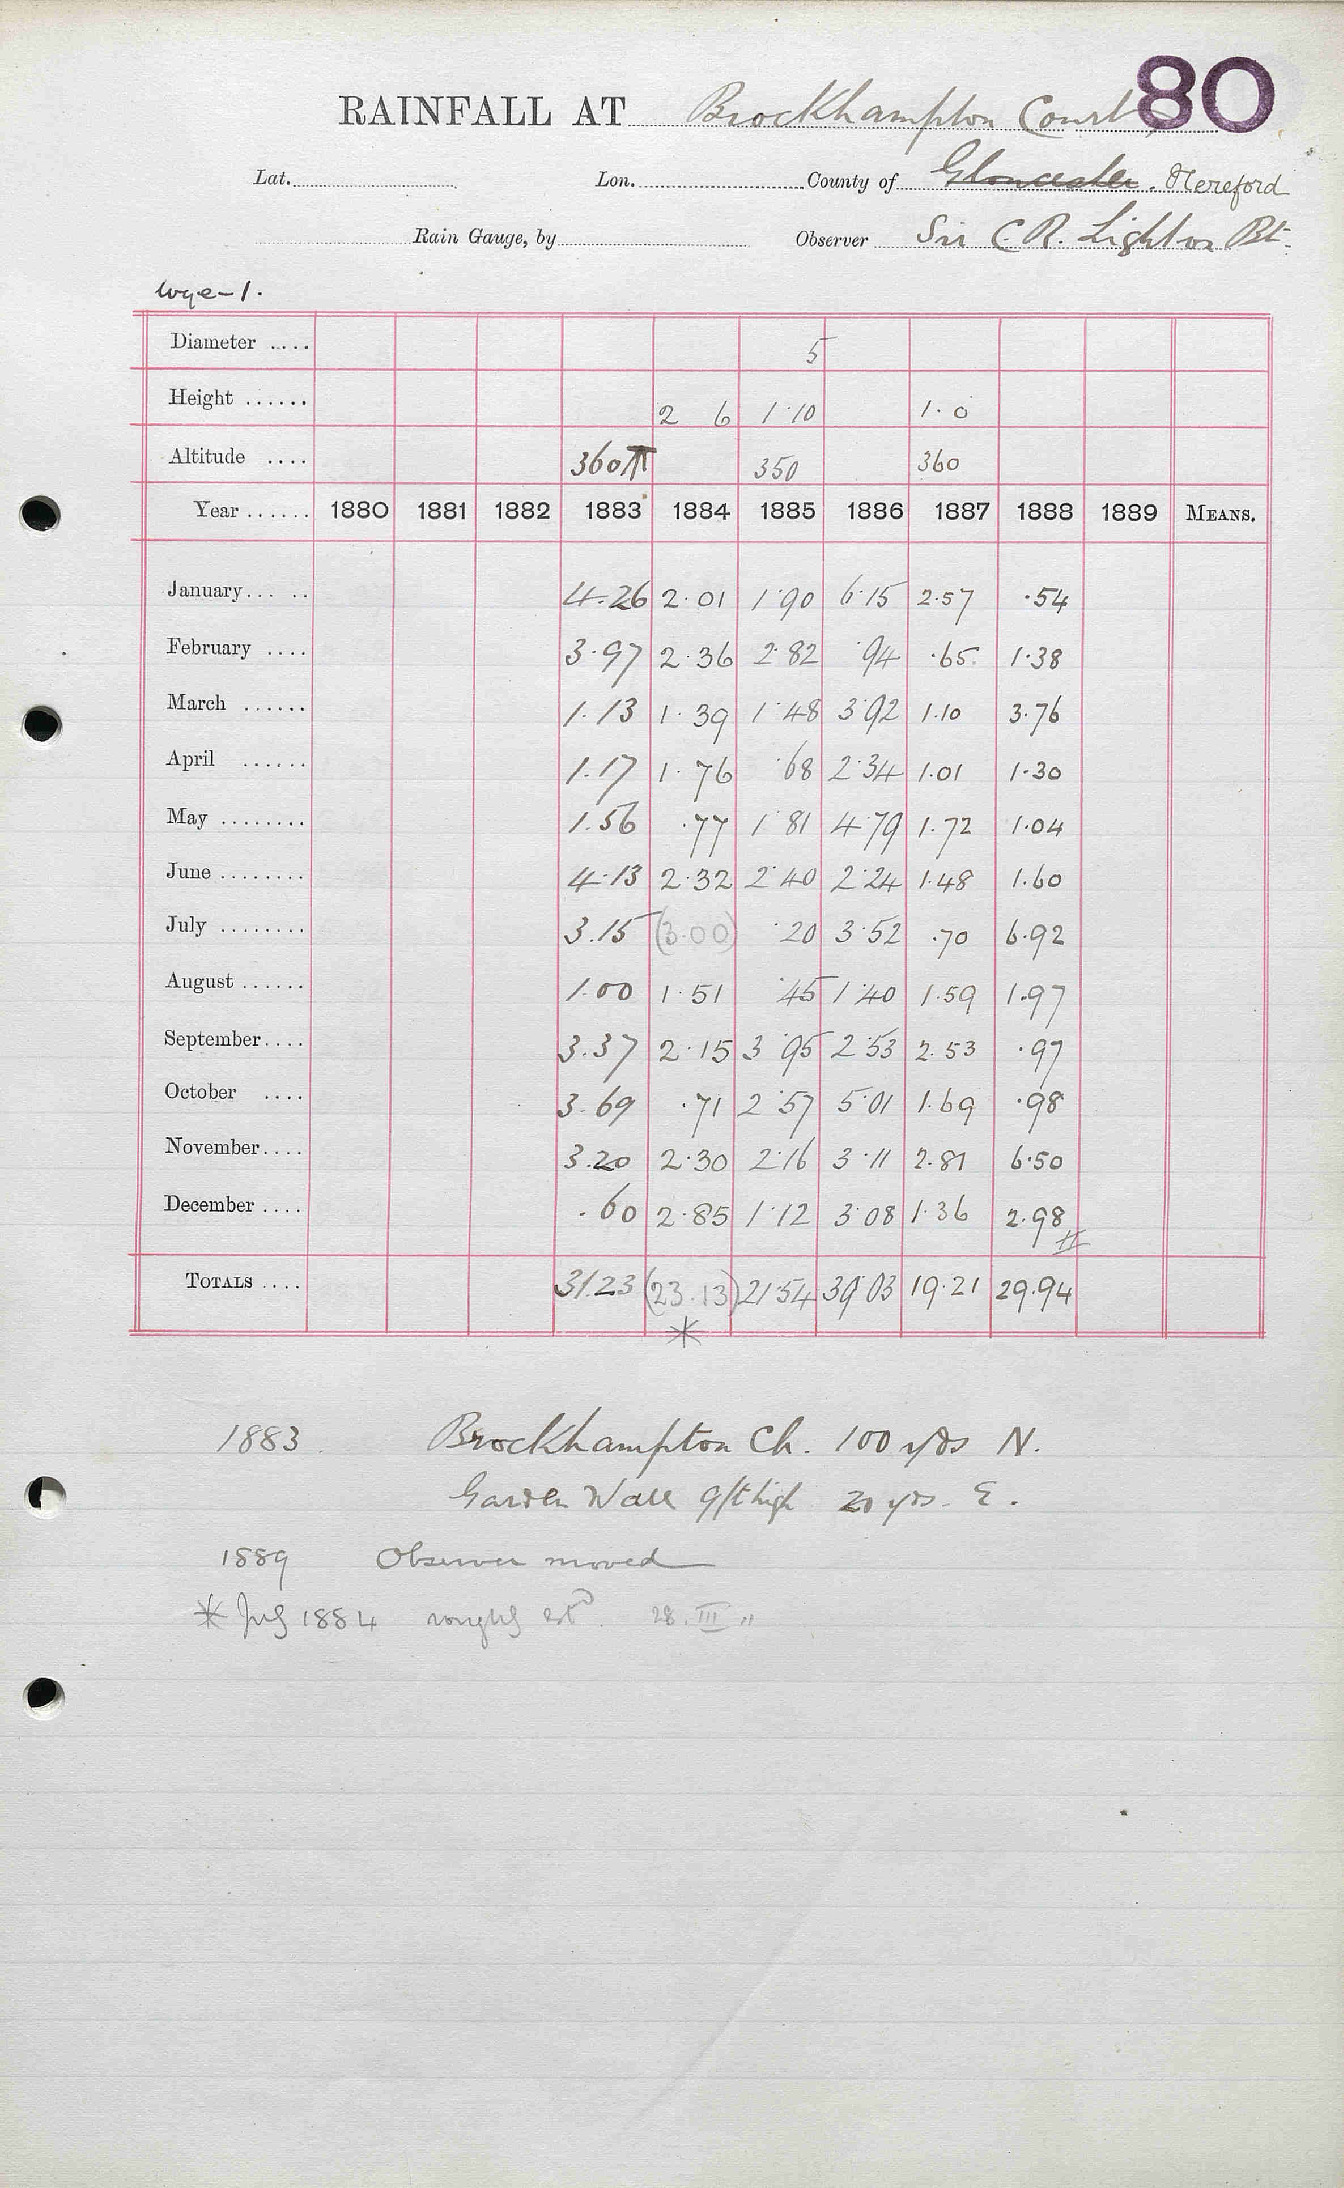 80
RAINFALL AT Brockhampton Court
Lat. Lon. County of Gloucester. Hereford
Rain Gauge, by Observer Sir C. R. Lighton Bt.
Wye-1.
Diameter .... 5
Height ...... 2 6 1·10 1·0
Altitude .... 360 ft 350 360
Year ...... 1880 1881 1882 1883 1884 1885 1886 1887 1888 1889 MEANS.
January... .. 4.26 2·01 1·90 6·15 2·57 ·54
February .... 3·97 2·36 2·82 ·94 ·65 1·38
March ...... 1.13 1·39 1·48 3·92 1·10 3·76
April ...... 1.17 1·76 ·68 2·34 1·01 1·30
May ........ 1.56 ·77 1·81 4·79 1·72 1·04
June ........ 4·13 2·32 2·40 2·24 1·48 1·60
July ........ 3.15 (3·00) ·20 3·52 ·70 6·92
August ...... 1.00 1·51 ·45 1·40 1·59 1·97
September.... 3.37 2·15 3·95 2·53 2·53 ·97
October .... 3.69 ·71 2·57 5·01 1·69 ·98
November.... 3.20 2·30 2·16 3·11 2·81 6·50
December .... .60 2·85 1·12 3·08 1·36 2·98
TOTALS .... 31.23 (23·13) 21·54 39·03 19·21 29·94
*
1883 Brockhampton Ch. 100 yds N.
Garden Wall 9ft high 20 yds. E.
1889 Observer moved
* July 1884 roughly estd. 28. III "